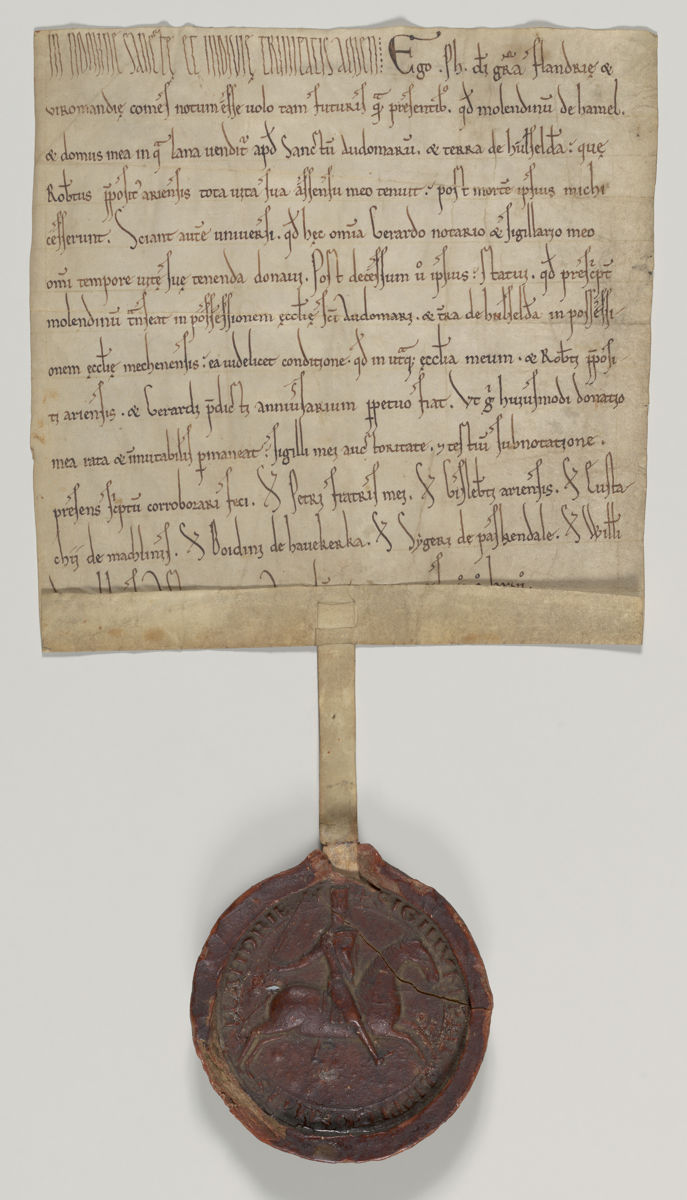 IN NOMINE SANCTE ET INDIVIDUE TRINITATIS AMEN: Ego . Ph. di gra flandrię &
viromandię comes notum esse volo tam futuris qm presentib'. qd molendinu de hamel.
& domus mea in q lana vendit apd Sanctu Audomaru. & terra de hulselda: quę
Robtus pposit' ariensis tota vita sua assensu meo tenuit: post morte ipsius michi
cesserunt. Sciant aute universi. qd hęc omia Gerardo notario & sigillario meo
omi tempore vitę suę tenenda donavi. Post decessum u ipsius: statui. qd prescptu
molendinu tnseat in possessionem ęcclię sci Audomari. & tra de hulselda in possessi-
onem ęcclię mechenensis: ea videlicet conditione. qd in utq; ęcclia meum. & Robti pposi-
ti ariensis. & Gerardi pdicti anniusarium ppetuo fiat. Ut g huiusmodi donatio
mea rata & inmutabilis pmaneat: sigilli mei auctoritate. & testiu subnotatione.
presens sciptu corroborari feci. S Petri fratris mei. S Gislebti ariensis. S Eusta-
chii de machlinis. S Boidini de haverkerka. S Sygeri de paskendale. S Willi
SIGILLVM
ANDRIE